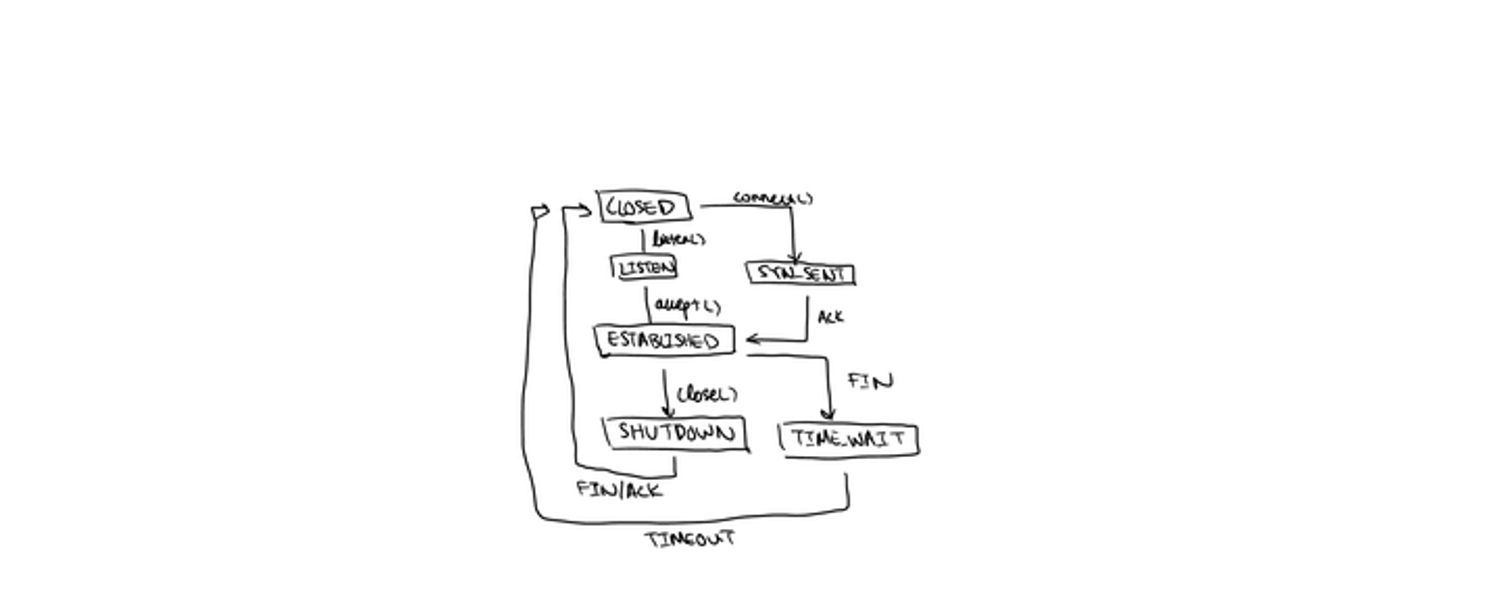 connect()
CLOSED
listen()
LISTEN
SYN_SENT
accept()
ACK
ESTABLISHED
FIN
close()
SHUTDOWN
TIME_WAIT
FIN/ACK
TIMEOUT